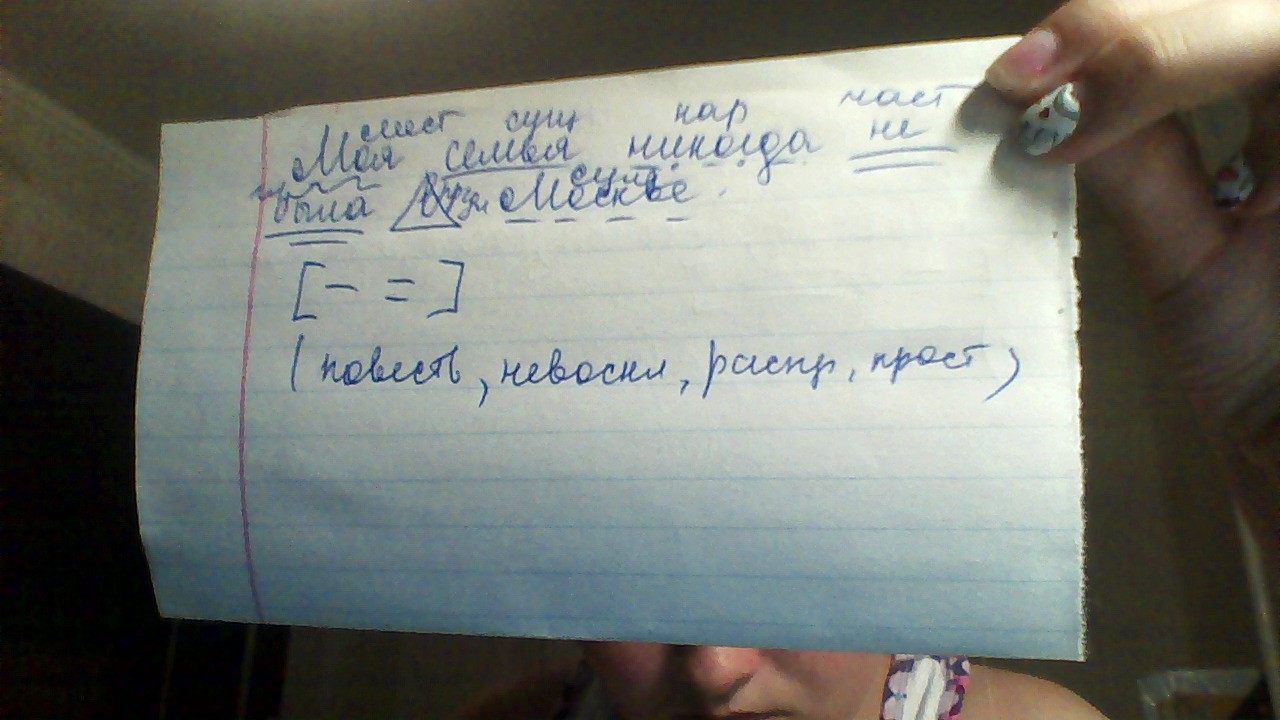 мест сущ нар част
Моя семья никогда не
сущ
была в Москве.
[- =]
(повеств, невоскл, распр, прост)